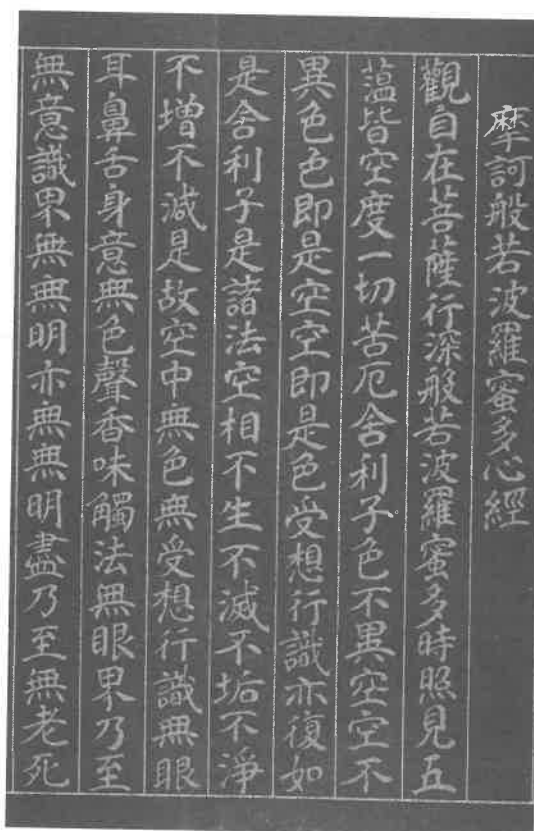 摩訶般若波羅蜜多心經
觀自在菩薩行深般若波羅蜜多時照見五
薀皆空度一切苦厄舍利子色不異空空不
異色色即是空空即是色受想行識亦復如
是舍利子是諸法空相不生不滅不垢不淨
不增不減是故空中無色無受想行識無眼
耳鼻舌身意無色聲香味觸法無眼界乃至
無意識界無無明亦無無明盡乃至無老死